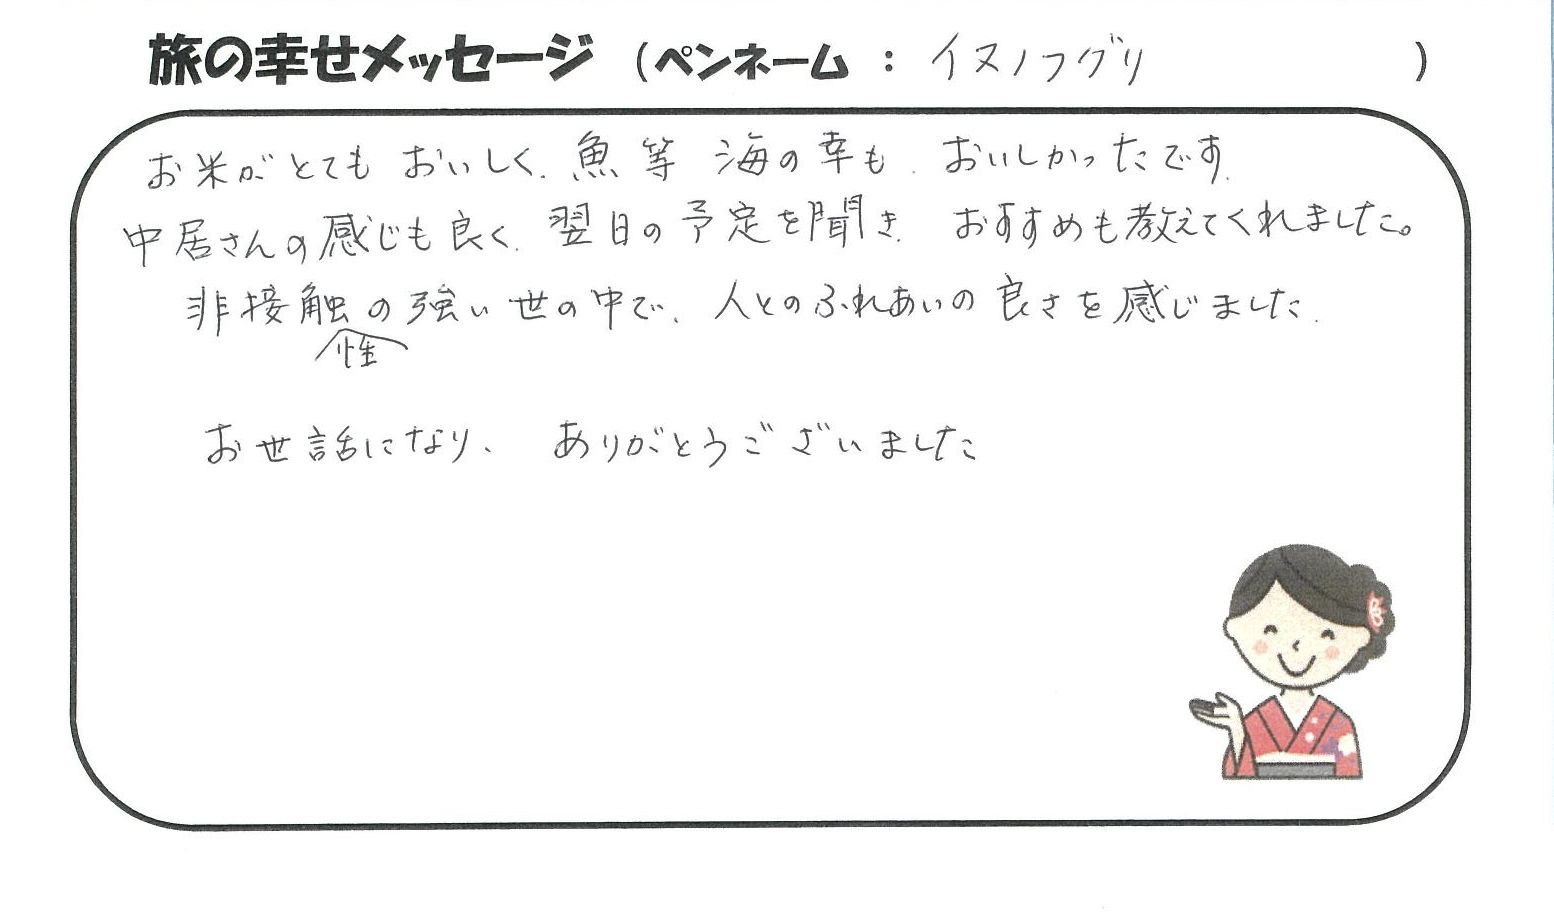 旅の幸せメッセージ (ペンネーム : イヌノフグリ )
お米がとてもおいしく、魚等 海の幸も、おいしかったです。
中居さんの感じも良く、翌日の予定を聞き、おすすめも教えてくれました。
非接触性の強い世の中で、人とのふれあいの良さを感じました。
お世話になり、ありがとうございました